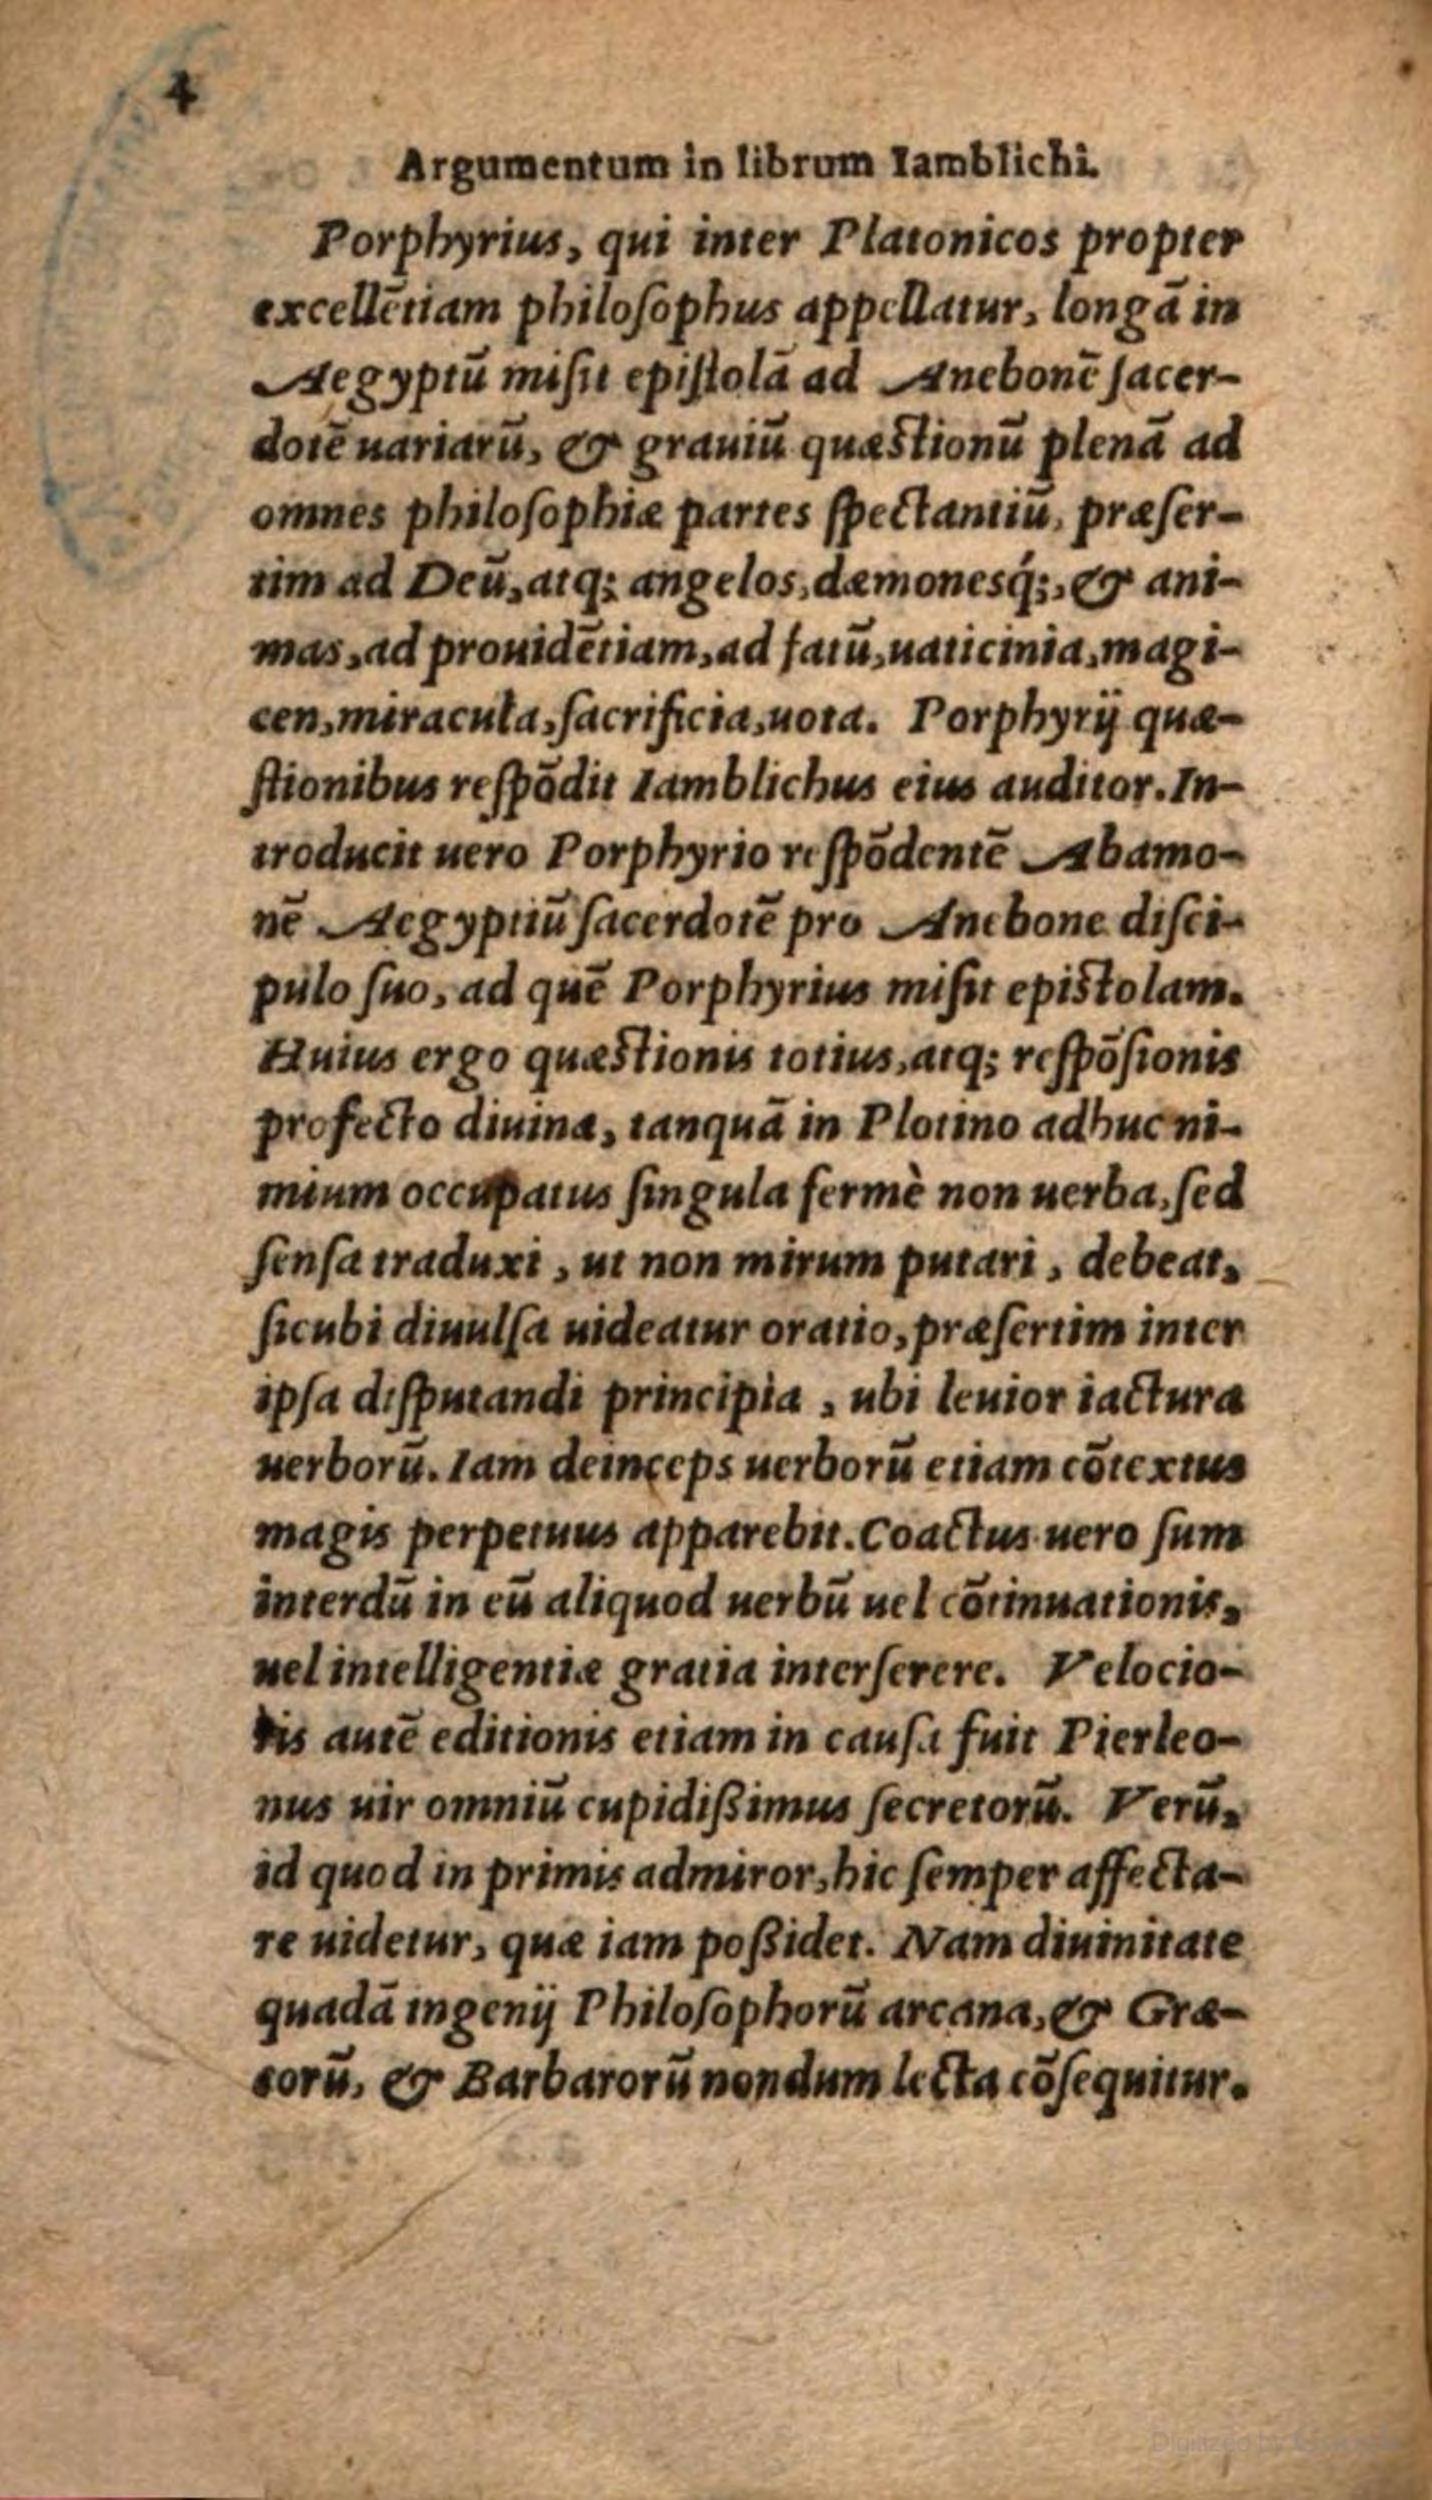 4
Argumentum in librum Iamblichi.
Porphyrius, qui inter Platonicos propter
excellẽtiam philoſophus appellatur, longã in
Aegyptũ miſit epiſtolã ad Anebonẽ ſacer-
dotẽ uariarũ, & grauiũ quæſtionũ plenã ad
omnes philoſophiæ partes ſpectantiũ, præſer-
tim ad Deũ, atq; angelos, dæmonesq́;, & ani-
mas, ad prouidẽtiam, ad fatũ, uaticinia, magi-
cen, miracula, ſacrificia, uota. Porphyrij quæ-
ſtionibus reſpõdit Iamblichus eius auditor. In-
troducit uero Porphyrio reſpõdentẽ Abamo-
nẽ Aegyptiũ ſacerdotẽ pro Anebone diſci-
pulo ſuo, ad quẽ Porphyrius miſit epiſtolam.
Huius ergo quæſtionis totius, atq; reſpõſionis
profecto diuina, tanquã in Plotino adhuc ni-
mium occupatus ſingula fermè non uerba, ſed
ſenſa traduxi, ut non mirum putari, debeat,
ſicubi diuulſa uideatur oratio, præſertim inter
ipſa diſputandi principia, ubi leuior iactura
uerborũ. Iam deinceps uerborũ etiam cõtextus
magis perpetuus apparebit. Coactus uero ſum
interdũ in eũ aliquod uerbũ uel cõtinuationis,
uel intelligentiæ gratia interſerere. Velocio-
ris autẽ editionis etiam in cauſa fuit Pierleo-
nus uir omniũ cupidißimus ſecretorũ. Verũ,
id quod in primis admiror, hic ſemper affecta-
re uidetur, quæ iam poßidet. Nam diuinitate
quadã ingenij Philoſophorũ arcana, & Græ-
corũ, & Barbarorũ nondum lecta cõſequitur.
Digitized by Google